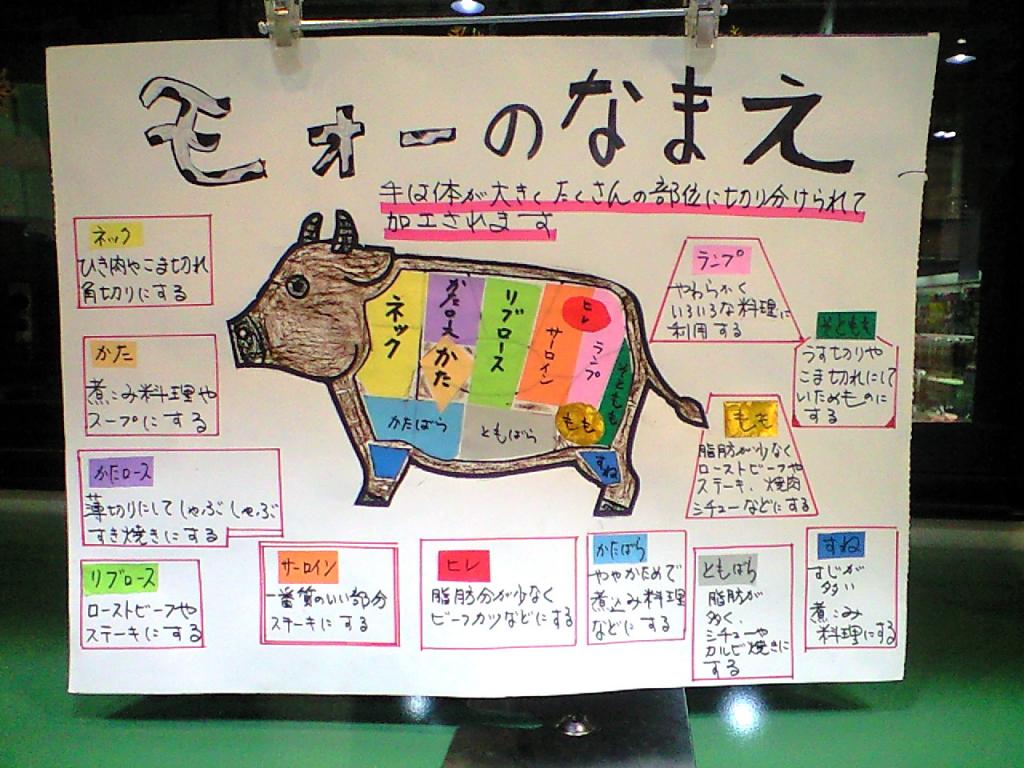 モォーのなまえ
牛は体が大きくたくさんの部位に切り分けられて
加工されます
ネック
ひき肉やこま切れ
角切りにする
かた
煮こみ料理や
スープにする
かたロース
薄切りにしてしゃぶしゃぶ
すき焼きにする
リブロース
ローストビーフや
ステーキにする
サーロイン
一番質のいい部分
ステーキにする
ヒレ
脂肪分が少なく
ビーフカツなどにする
かたばら
ややかためで
煮込み料理
などにする
ともばら
脂肪が
多く、
シチューや
カルビ焼きに
する
すね
すじが
多い
煮こみ
料理にする
もも
脂肪が少なく
ローストビーフや
ステーキ、焼肉
シチューなどにする
そともも
うす切りや
こま切れにして
いためものに
する
ランプ
やわらかく
いろいろな料理に
利用する
ネック
かたロース
かた
リブロース
サーロイン
ヒレ
ランプ
そともも
もも
かたばら
ともばら
すね